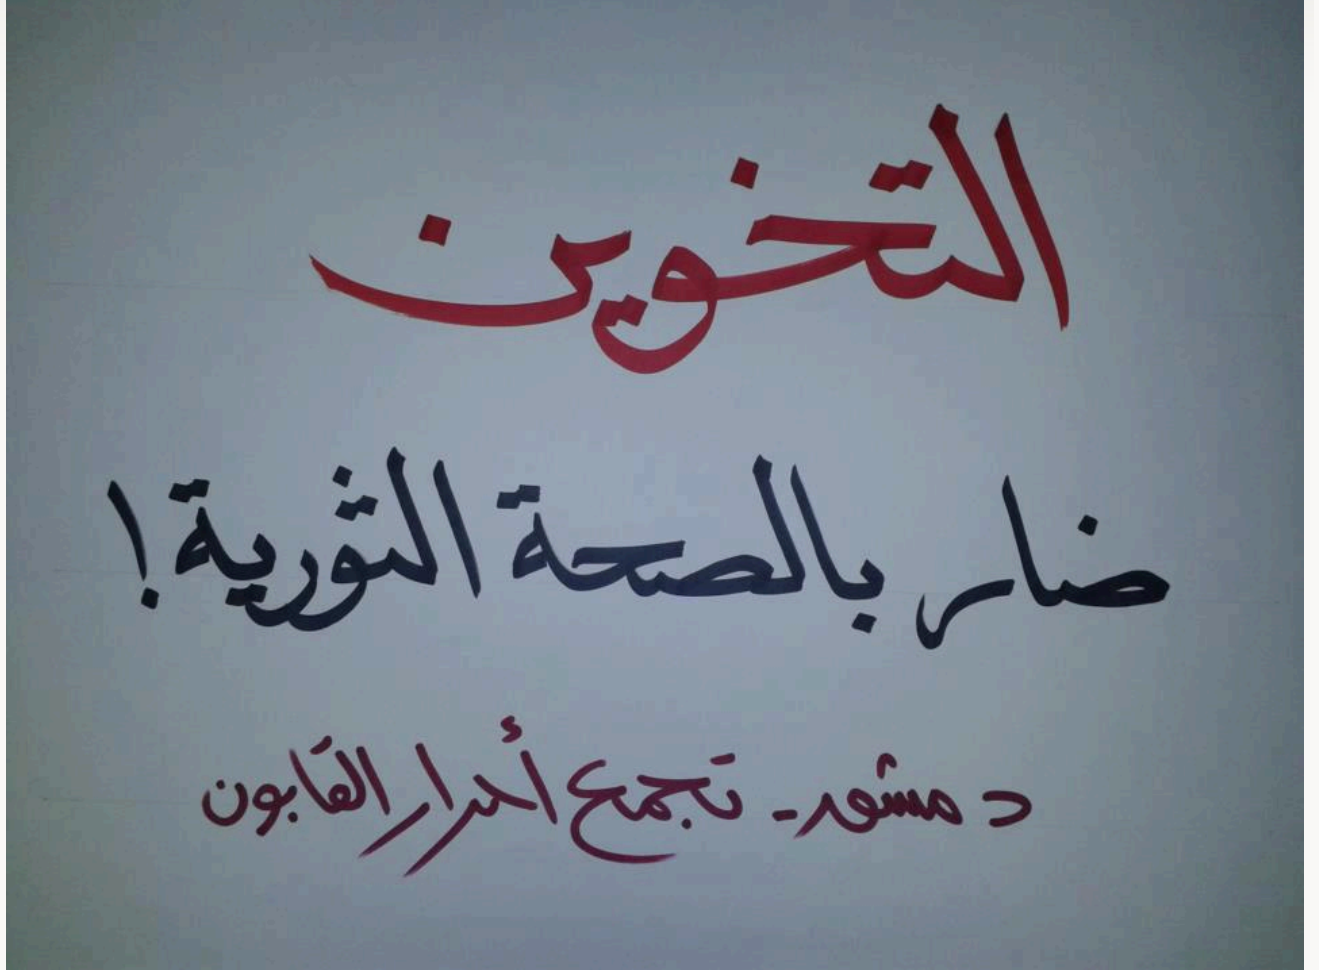 التخوين
ضار بالصحة الثورية !
دمشق - تجمع أحرار القابون